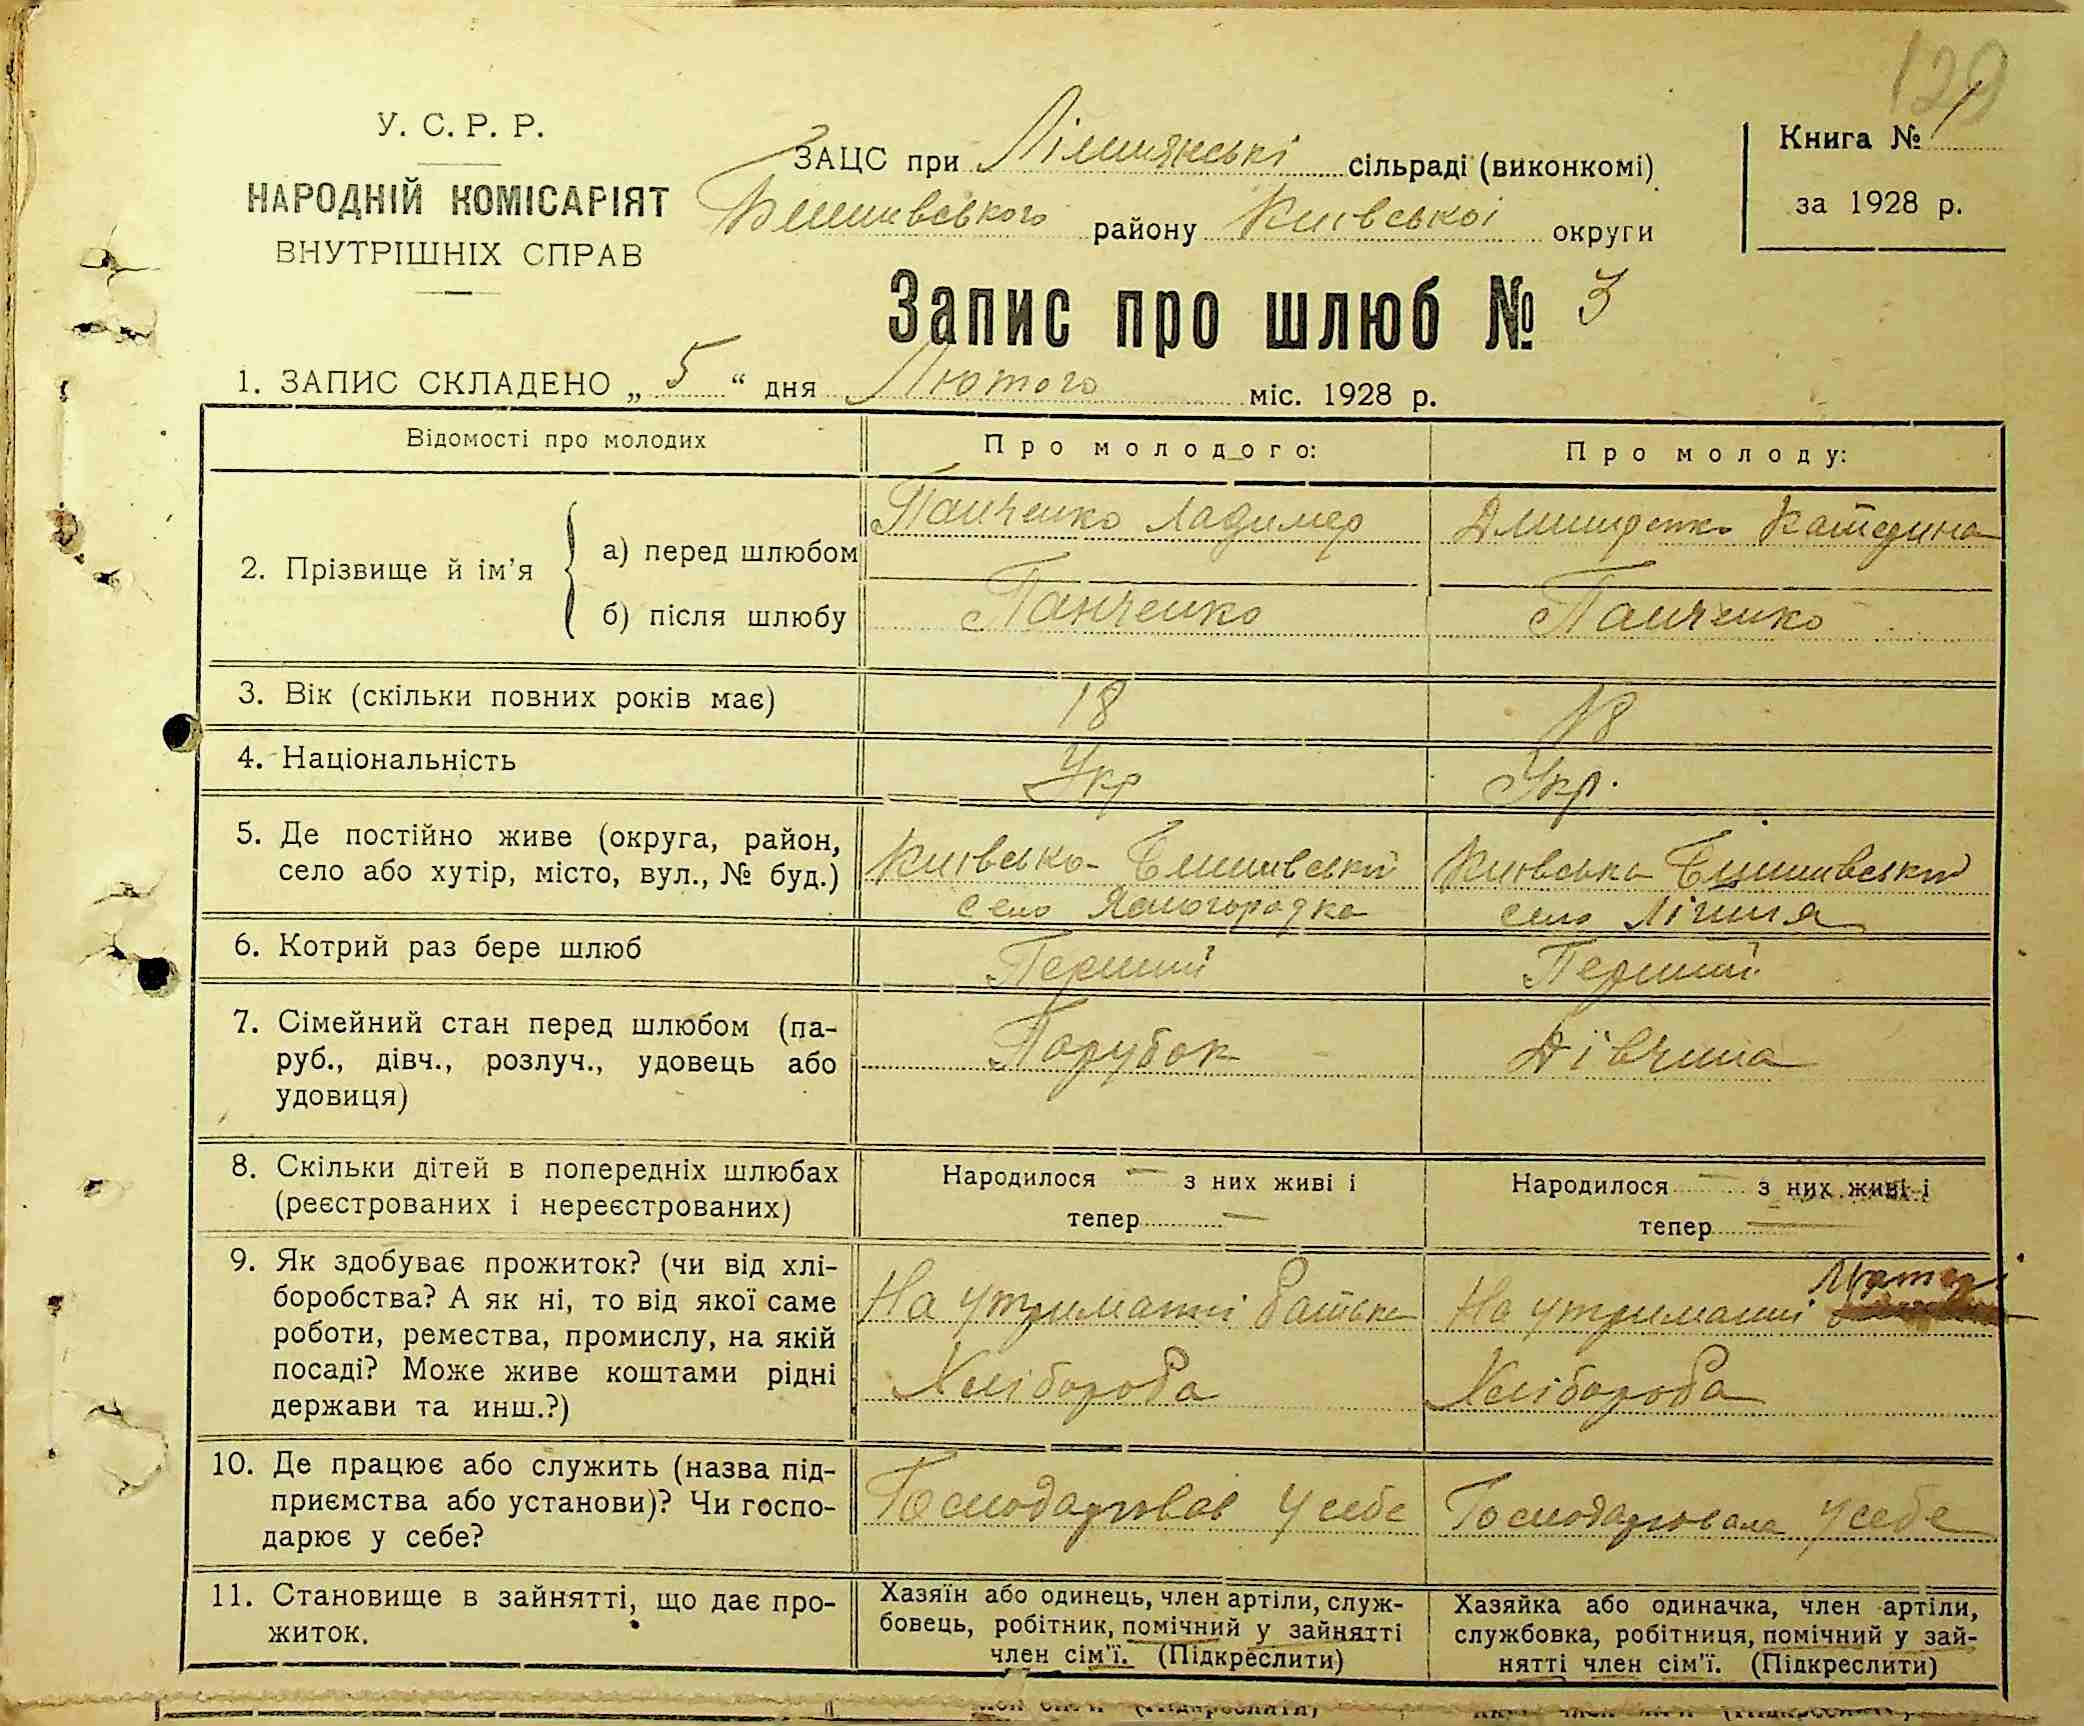 129
У. С. Р. Р.
НАРОДНІЙ КОМІСАРІЯТ
ВНУТРІШНІХ СПРАВ
ЗАЦС при Лішнянські сільраді (виконкомі)
Бишівського району Київської округи
Книга № 1
за 1928 р.
Запис про шлюб № 3
1. ЗАПИС СКЛАДЕНО „ 5 “ дня Лютого міс. 1928 р.
Відомості про молодих
Про молодого:
Про молоду:
2. Прізвище й ім’я
а) перед шлюбом
Панченко Ладимер
Дмитренко Катерина
б) після шлюбу
Панченко
Панченко
3. Вік (скільки повних років має)
18
18
4. Національність
Укр
Укр.
5. Де постійно живе (округа, район,
село або хутір, місто, вул., № буд.)
Київська Бишивський
село Ясногородка
Київська Бишивський
село Лішня
6. Котрий раз бере шлюб
Перший
Перший
7. Сімейний стан перед шлюбом (па-
руб., дівч., розлуч., удовець або
удовиця)
Парубок
Дівчина
8. Скільки дітей в попередніх шлюбах
(реєстрованих і нереєстрованих)
Народилося — з них живі і
тепер —
Народилося — з них живі і
тепер —
9. Як здобуває прожиток? (чи від хлі-
боробства? А як ні, то від якої саме
роботи, ремества, промислу, на якій
посаді? Може живе коштами рідні
держави та инш.?)
На утриманні батька
Хлібороба
Матері
На утриманні
Хлібороба
10. Де працює або служить (назва під-
приємства або установи)? Чи госпо-
дарює у себе?
Господарював у себе
Господарювала у себе
11. Становище в зайнятті, що дає про-
житок.
Хазяїн або одинець, член артіли, служ-
бовець, робітник, помічний у зайнятті
член сім’ї. (Підкреслити)
Хазяйка або одиначка, член артіли,
службовка, робітниця, помічний у зай-
нятті член сім’ї. (Підкреслити)